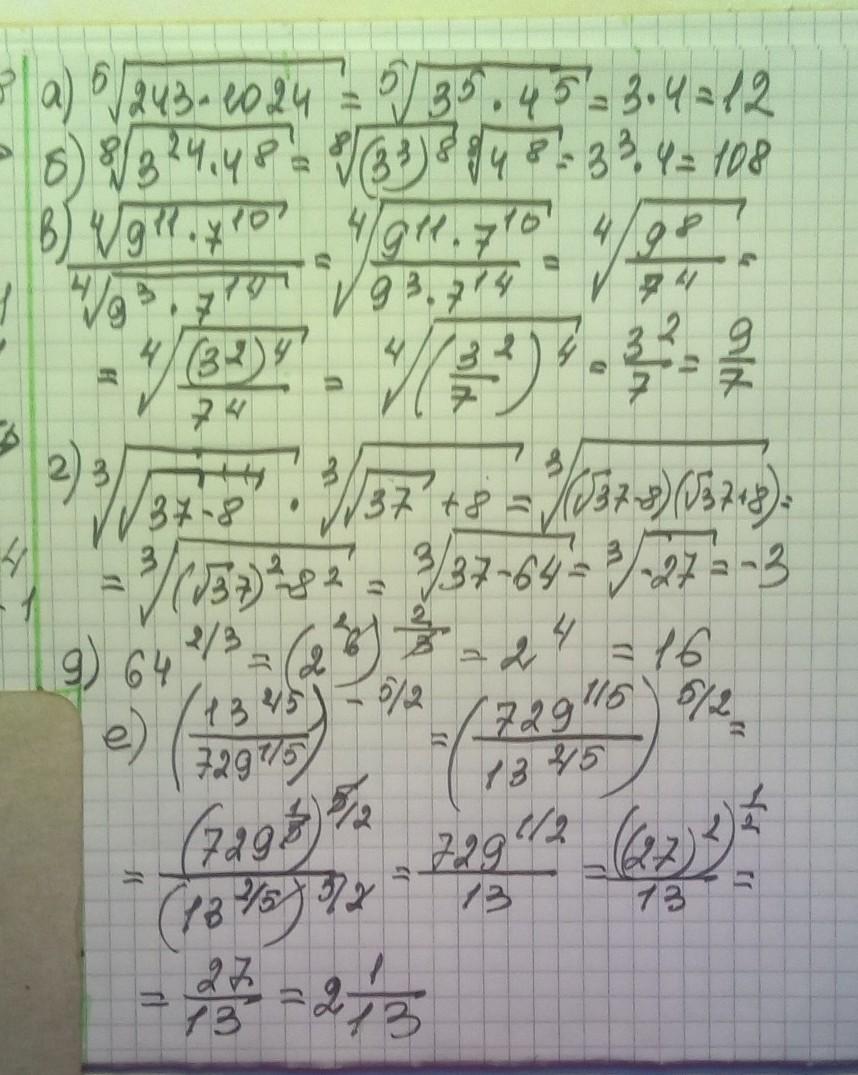 а) ⁵√(243·1024) = ⁵√(3⁵·4⁵) = 3·4 = 12
б) ⁸√(3²⁴·4⁸) = ⁸√((3³)⁸) ⁸√(4⁸) = 3³·4 = 108
в) ⁴√(9¹¹·7¹⁰) / ⁴√(9³·7¹⁴) = ⁴√((9¹¹·7¹⁰)/(9³·7¹⁴)) = ⁴√(9⁸/7⁴) =
= ⁴√((3²)⁴/7⁴) = ⁴√((3²/7)⁴) = 3²/7 = 9/7
г) ³√(√37-8) · ³√(√37+8) = ³√((√37-8)(√37+8)) =
= ³√((√37)²-8²) = ³√(37-64) = ³√(-27) = -3
д) 64^(2/3) = (2⁶)^(2/3) = 2⁴ = 16
е) (13^(2/5)/729^(1/5))^(-5/2) = (729^(1/5)/13^(2/5))^(5/2) =
= (729^(1/5))^(5/2)/(13^(2/5))^(5/2) = 729^(1/2)/13 = ((27)²)^(1/2)/13 =
= 27/13 = 2 1/13